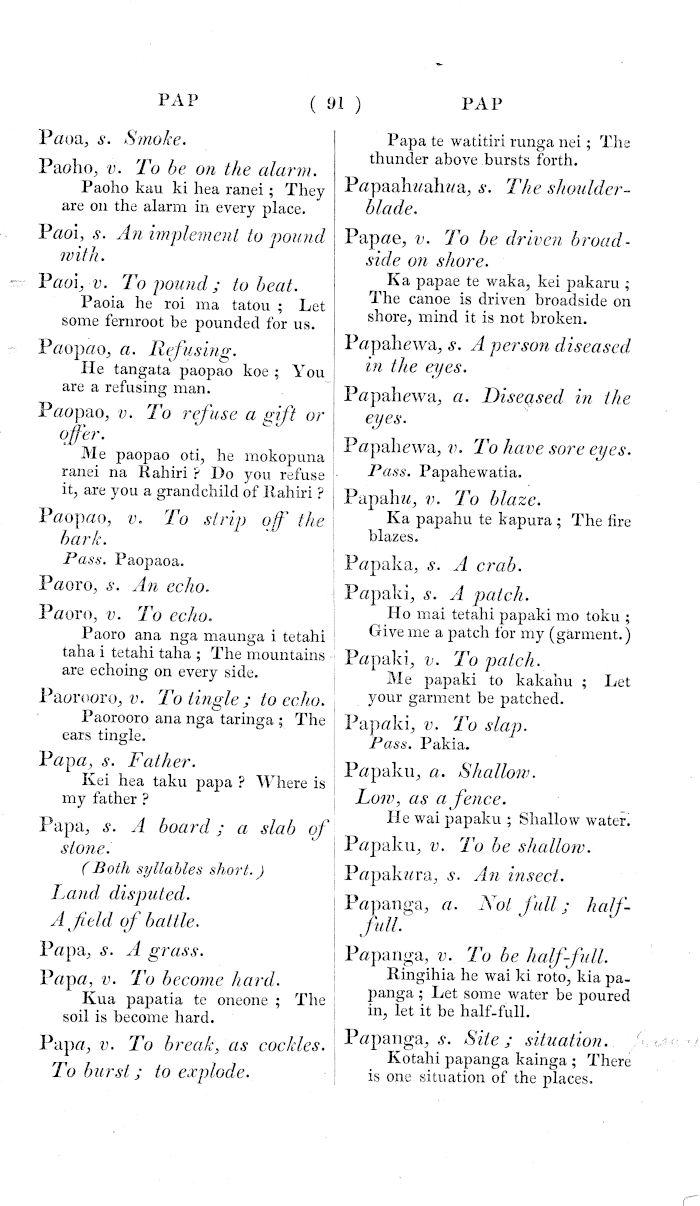 PAP ( 91 ) PAP
Paoa, s. Smoke.
Paoho, v. To be on the alarm.
Paoho kau ki hea ranei ; They
are on the alarm in every place.
Paoi, s. An implement to pound
with.
Paoi, v. To pound ; to beat.
Paoia he roi ma tatou ; Let
some fernroot be pounded for us.
Paopao, a. Refusing.
He tangata paopao koe ; You
are a refusing man.
Paopao, v. To refuse a gift or
offer.
Me paopao oti, he mokopuna
ranei na Rahiri ? Do you refuse
it, are you a grandchild of Rahiri ?
Paopao, v. To strip off the
bark.
Pass. Paopaoa.
Paoro, s. An echo.
Paoro, v. To echo.
Paoro ana nga maunga i tetahi
taha i tetahi taha ; The mountains
are echoing on every side.
Paorooro, v. To tingle ; to echo.
Paorooro ana nga taringa ; The
ears tingle.
Papa, s. Father.
Kei hea taku papa ? Where is
my father ?
Papa, s. A board ; a slab of
stone.
(Both syllables short.)
Land disputed.
A field of battle.
Papa, s. A grass.
Papa, v. To become hard.
Kua papatia te oneone ; The
soil is become hard.
Papa, v. To break, as cockles.
To burst ; to explode.
Papa te watitiri runga nei ; The
thunder above bursts forth.
Papaahuahua, s. The shoulder-
blade.
Papae, v. To be driven broad-
side on shore.
Ka papae te waka, kei pakaru ;
The canoe is driven broadside on
shore, mind it is not broken.
Papahewa, s. A person diseased
in the eyes.
Papahewa, a. Diseased in the
eyes.
Papahewa, v. To have sore eyes.
Pass. Papahewatia.
Papahu, v. To blaze.
Ka papahu te kapura ; The fire
blazes.
Papaka, s. A crab.
Papaki, s. A patch.
Ho mai tetahi papaki mo toku ;
Give me a patch for my (garment.)
Papaki, v. To patch.
Me papaki to kakahu ; Let
your garment be patched.
Papaki, v. To slap.
Pass. Pakia.
Papaku, a. Shallow.
Low, as a fence.
He wai papaku ; Shallow water.
Papaku, v. To be shallow.
Papakura, s. An insect.
Papanga, a. Not full ; half-
full.
Papanga, v. To be half-full.
Ringihia he wai ki roto, kia pa-
panga ; Let some water be poured
in, let it be half-full.
Papanga, s. Site ; situation.
Kotahi papanga kainga ; There
is one situation of the places.